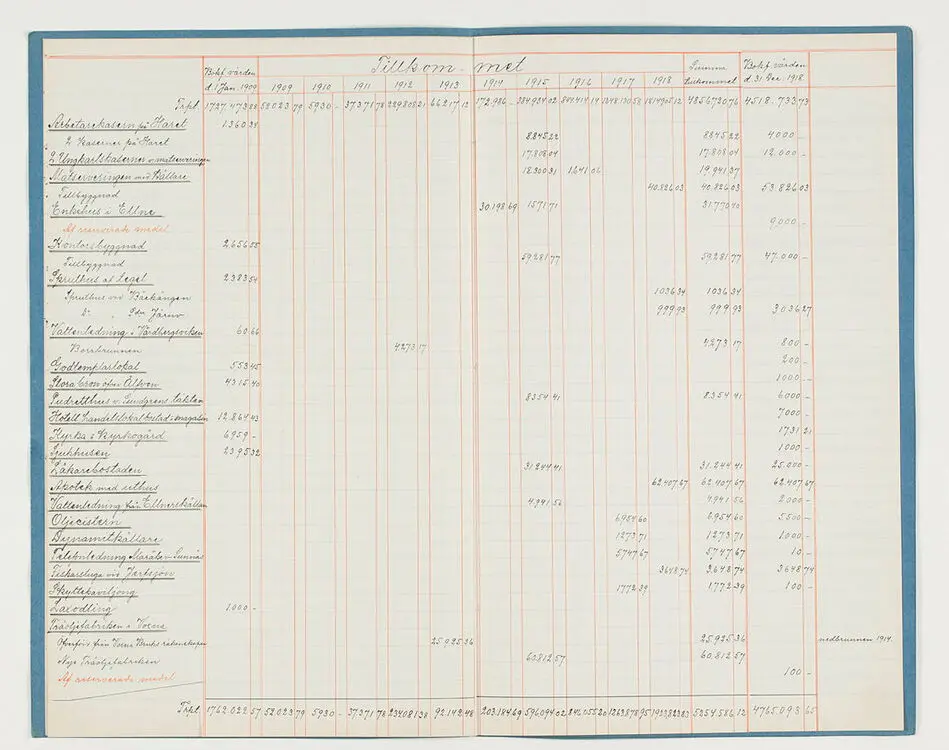 Tillkommet
Bokf. värden d. 1 Jan. 1909 1909 1910 1911 1912 1913 1914 1915 1916 1917 1918 Summa tillkommet Bokf. värden d. 31 Dec. 1918
Trpt. 1727.473 88 52023 79 5930 - 37371 78 66217 12 172.986 - 4518.733 73
Arbetarekasern på Haret 1360 34
2 Kaserner på Haret 8845 22 8845 22 4000 -
2 Ungkarlskaserner o. matserveringen 17.808 04 17.808 04 12.000 -
Matserveringen med Källare 18300 31 1641 06 19.941 37
Tillbyggnad 40.826 03 40.826 03 53.826 03
Enkehus i Ellne 30.198 69 1571 71 31.770 40
Af reserverade medel 9,000 -
Kontorsbyggnad 2.656 55
Tillbyggnad 59281 77 59281 77 47.000 -
Spruthus af leget 2383 54
Spruthus vid Bäckängen 1036 34 1036 34
D:o 999 93 999 93 3036 27
Vattenledning i Vårdbergsvcken 60 66
Borrbrunnen 4273 17 4273 17 800 -
Godtemplarlokal 553 45 200 -
Stora bron öfver Älfven 4315 40 1000 -
Pudretthus v. Lundgrens täkten 8354 41 8354 41 6000 -
Hotell handelslokal bostad o. magasin 12.864 43 7000 -
Kyrka o Kyrkogård 6959 - 1731 21
Sjukhusen 2395 32 1000 -
Läkarebostaden 31.244 41 31.244 41 25.000 -
Apotek med uthus 62.407 67 62.407 67 62.407 67
Vattenledning från Ellnerskällan 4.941 56 4.941 56 2000 -
Oljecistern 6954 60 6954 60 5500 -
Dynamitkällare 1273 71 1273 71 1000 -
Telefonledning Maråker-Sunnäs 5747 67 5.747 67 10 -
Fiskarstuga vid Jertsjön 3648 74 3.648 74 3648 74
Skyttepaviljong 1772 39 1.772 39 100 -
Laxodling 1.000 -
Träoljefabriken i Voxna
Öfverförd från Voxna Bruks räkenskaper 25.925 36 25.925 36 nedbrunnen 1914.
Nya Träoljefabriken 60.812 57 60.812 57
Af reserverade medel 100 -
Trpt. 1762.022 57 52023 79 5930 - 37371 78 234081 38 92.142 48 203.184 69 596094 02 5254.586 12 4765.093 65